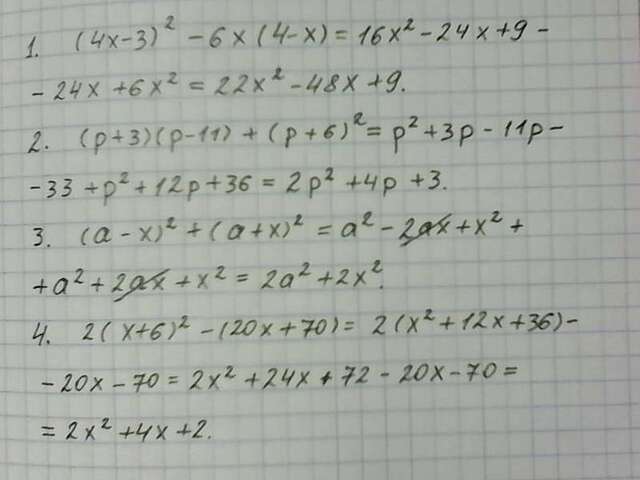 1. (4x-3)² - 6x(4-x) = 16x² - 24x + 9 -
- 24x + 6x² = 22x² - 48x + 9.
2. (p+3)(p-11) + (p+6)² = p² + 3p - 11p -
-33 + p² + 12p + 36 = 2p² + 4p + 3.
3. (a-x)² + (a+x)² = a² - 2ax + x² +
+ a² + 2ax + x² = 2a² + 2x².
4. 2(x+6)² - (20x+70) = 2(x² + 12x + 36) -
- 20x - 70 = 2x² + 24x + 72 - 20x - 70 =
= 2x² + 4x + 2.